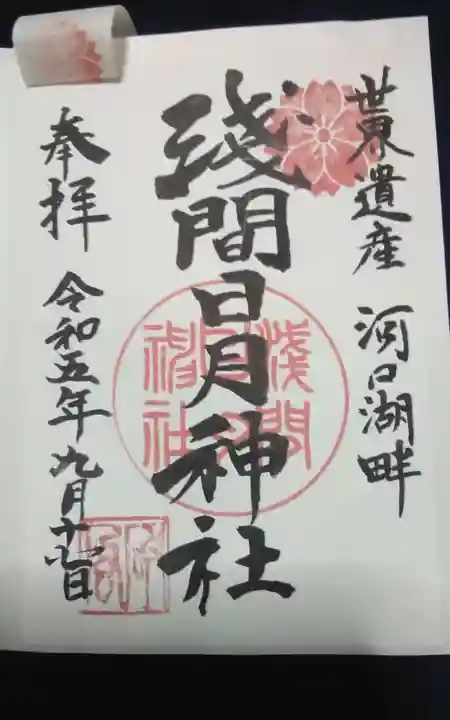 世界遺産 河口湖畔
淺間日月神社
淺間
日月
神社
奉拝 令和五年 九月十七日